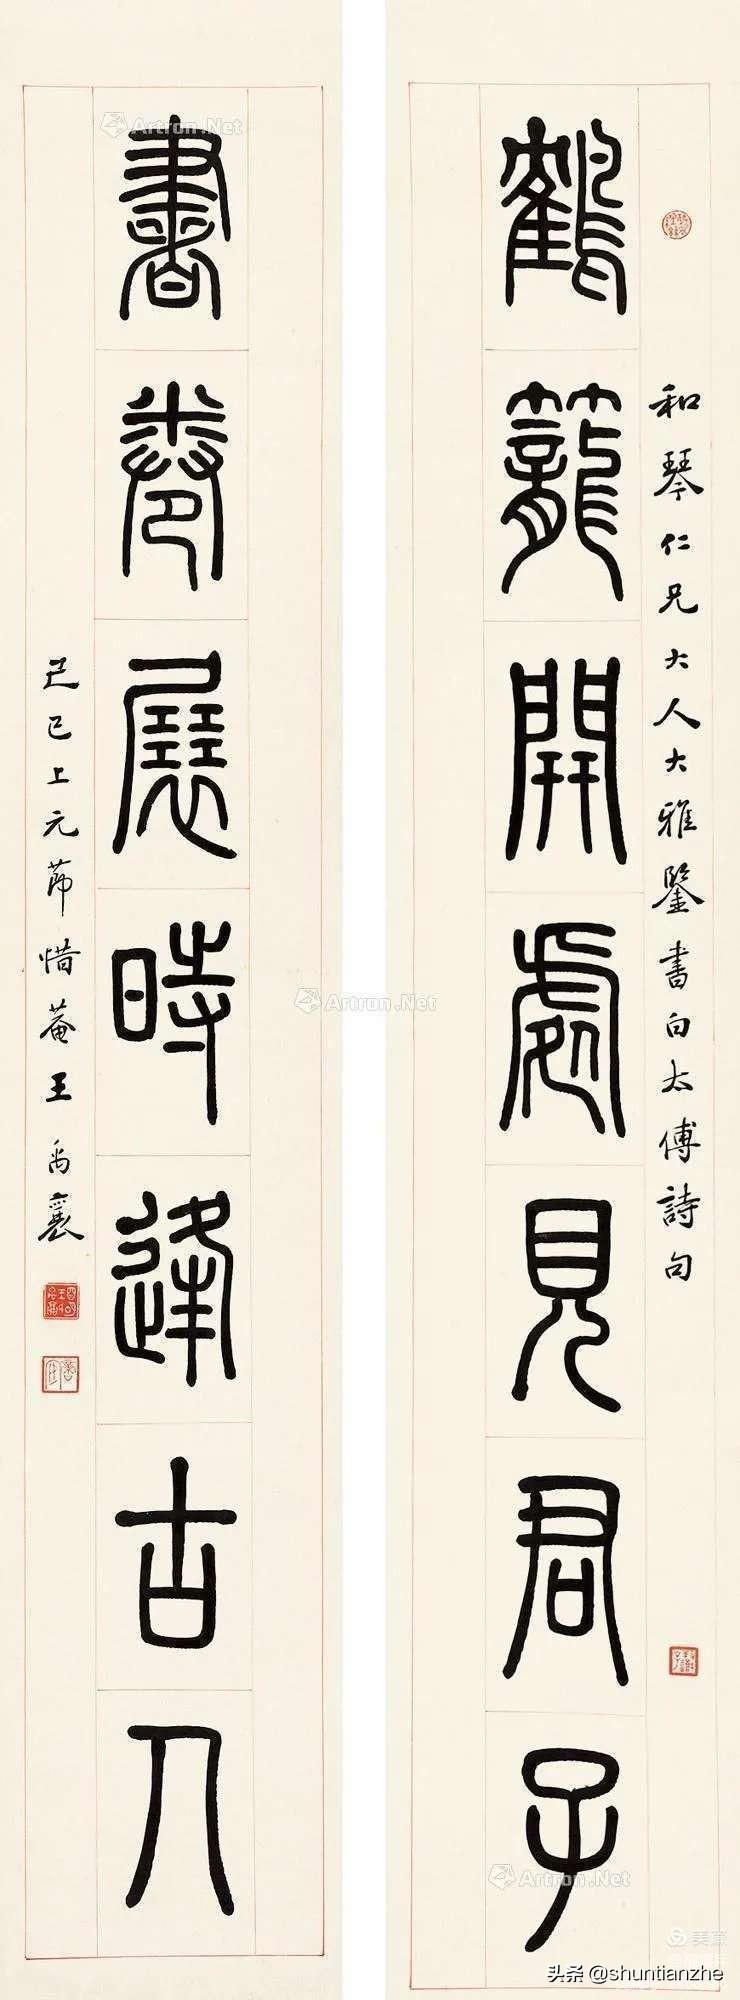 鶴籠開處見君子
和琴仁兄大人大雅鑒書白太傅詩句
書卷展時逢古人
己巳上元節惜菴王禹襄
Artron.Net
Artron.Net
Artron.Net
头条 @shuntianzhe